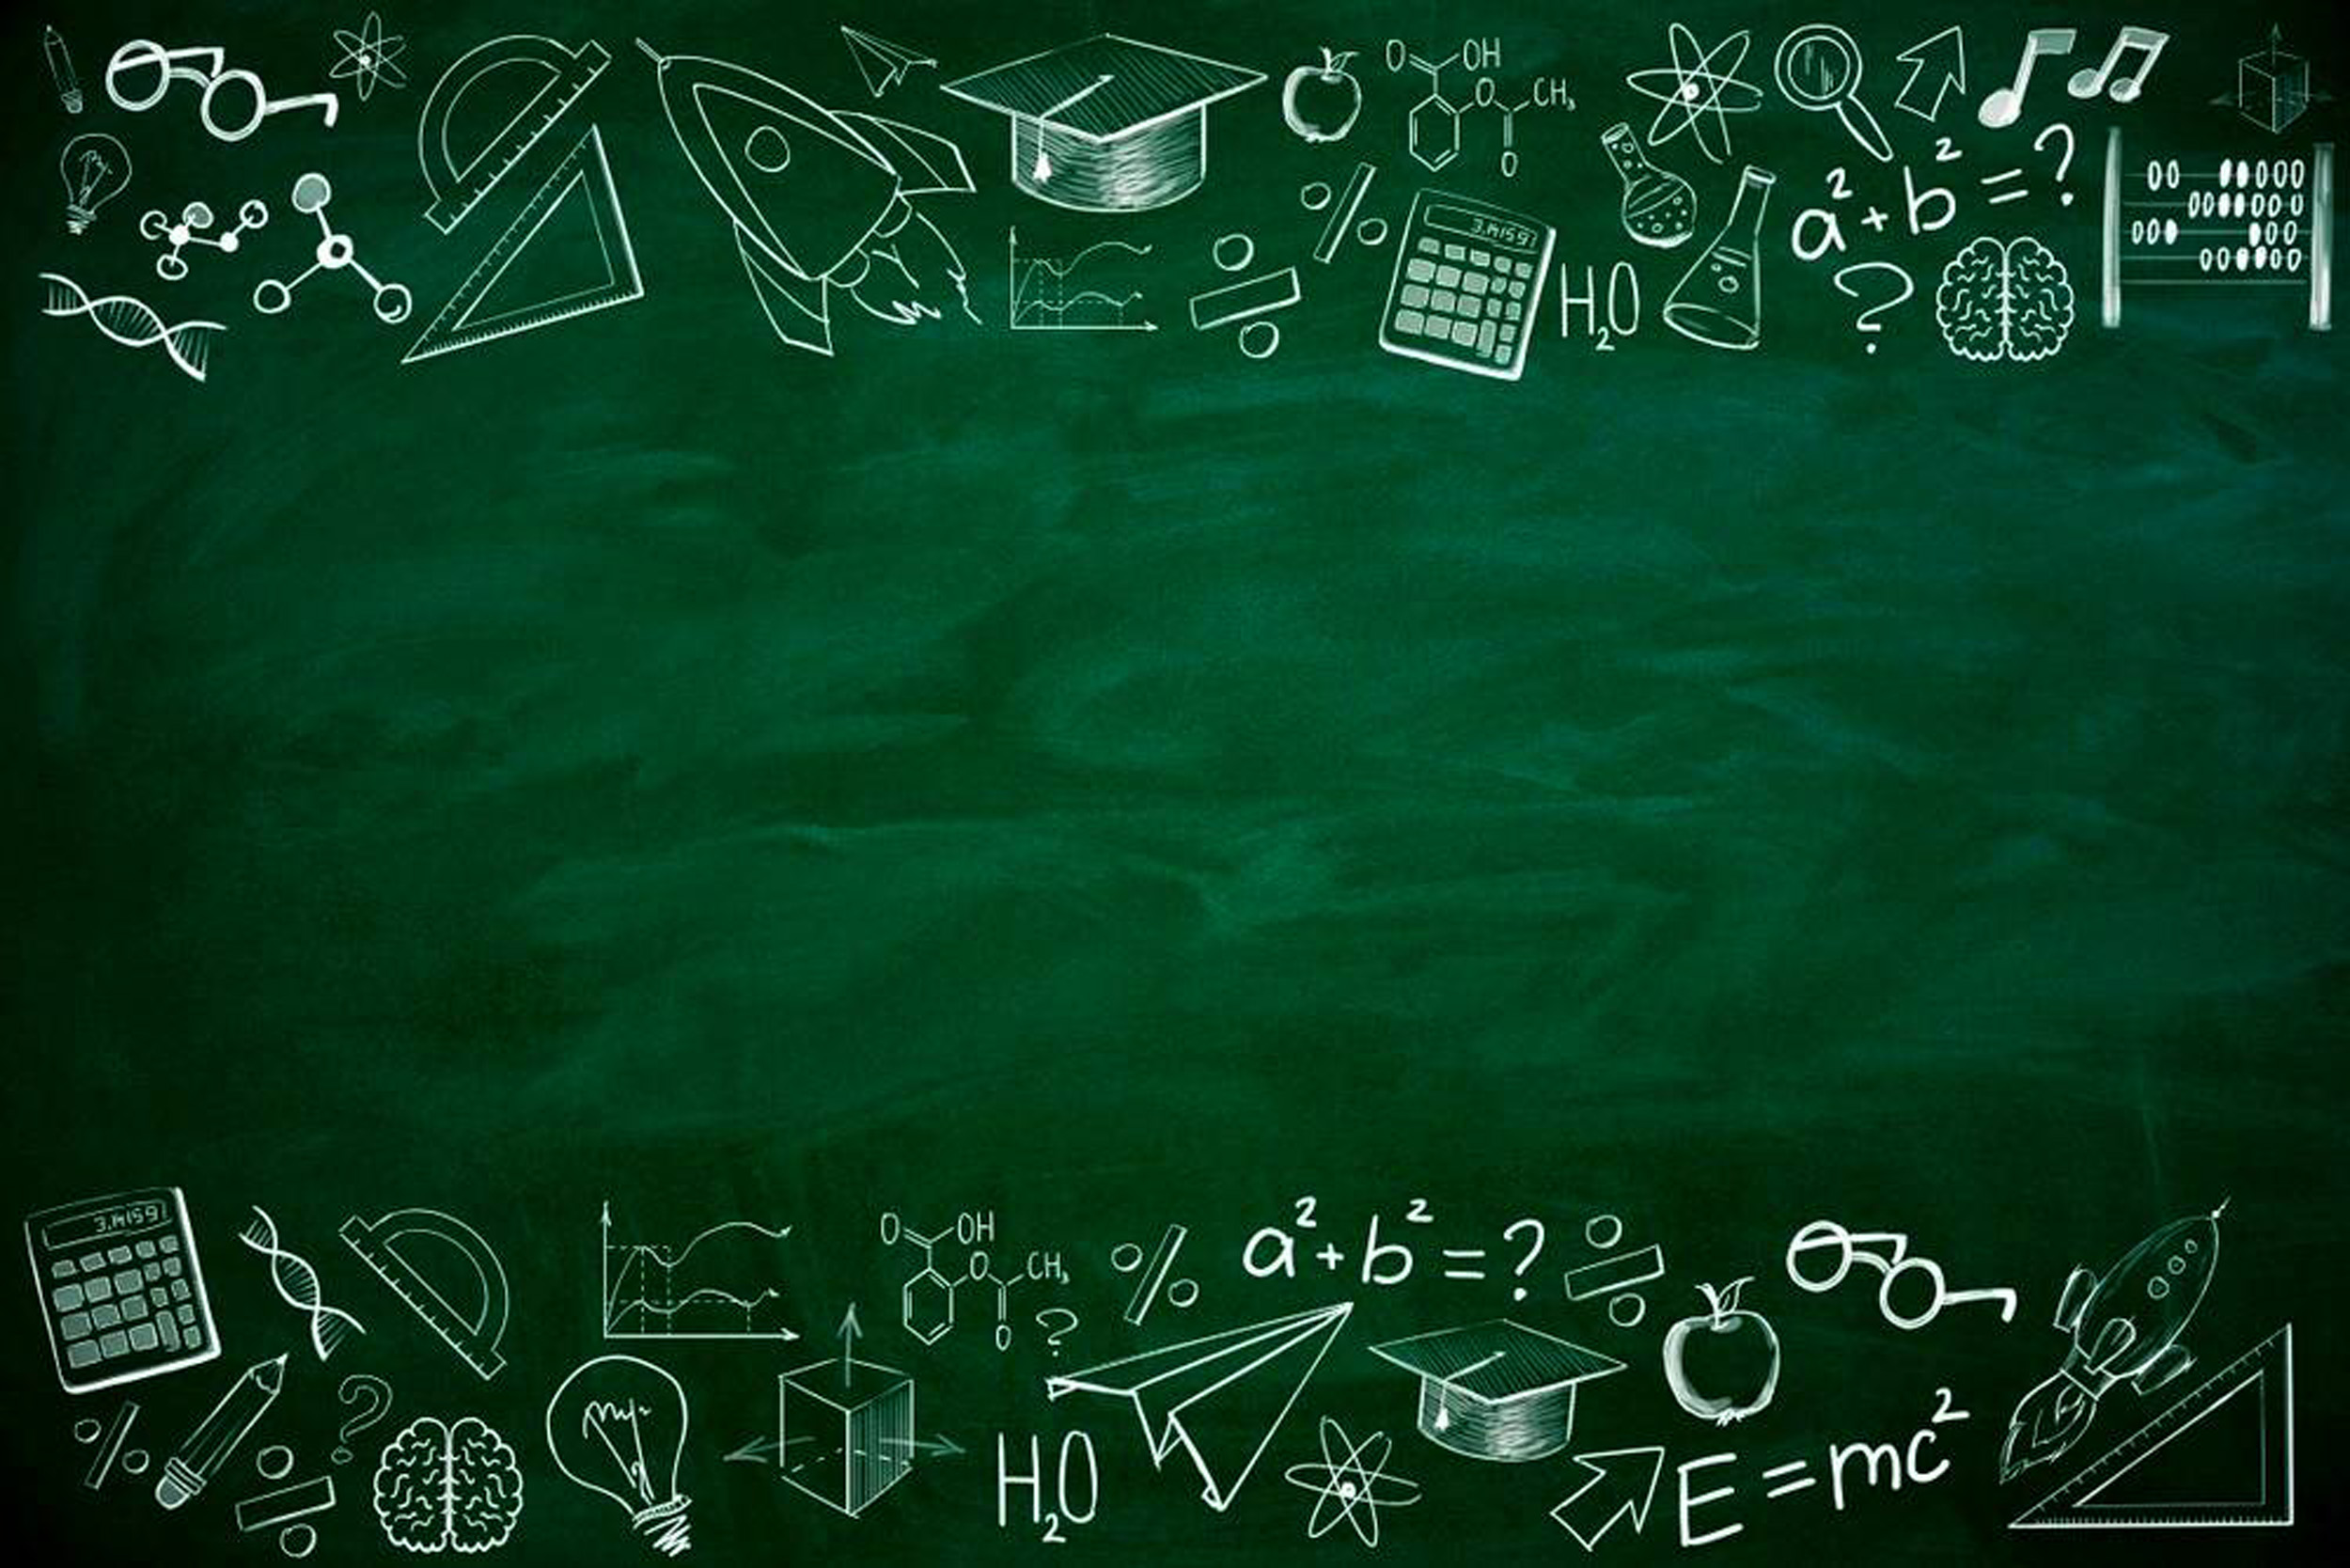 O OH
O CH₃
O
3.14159
H₂O
a² + b² = ?
?
3.14159
O OH
O CH₃
O
?
%
a² + b² = ?
÷
%
?
÷
H₂O
E = mc²